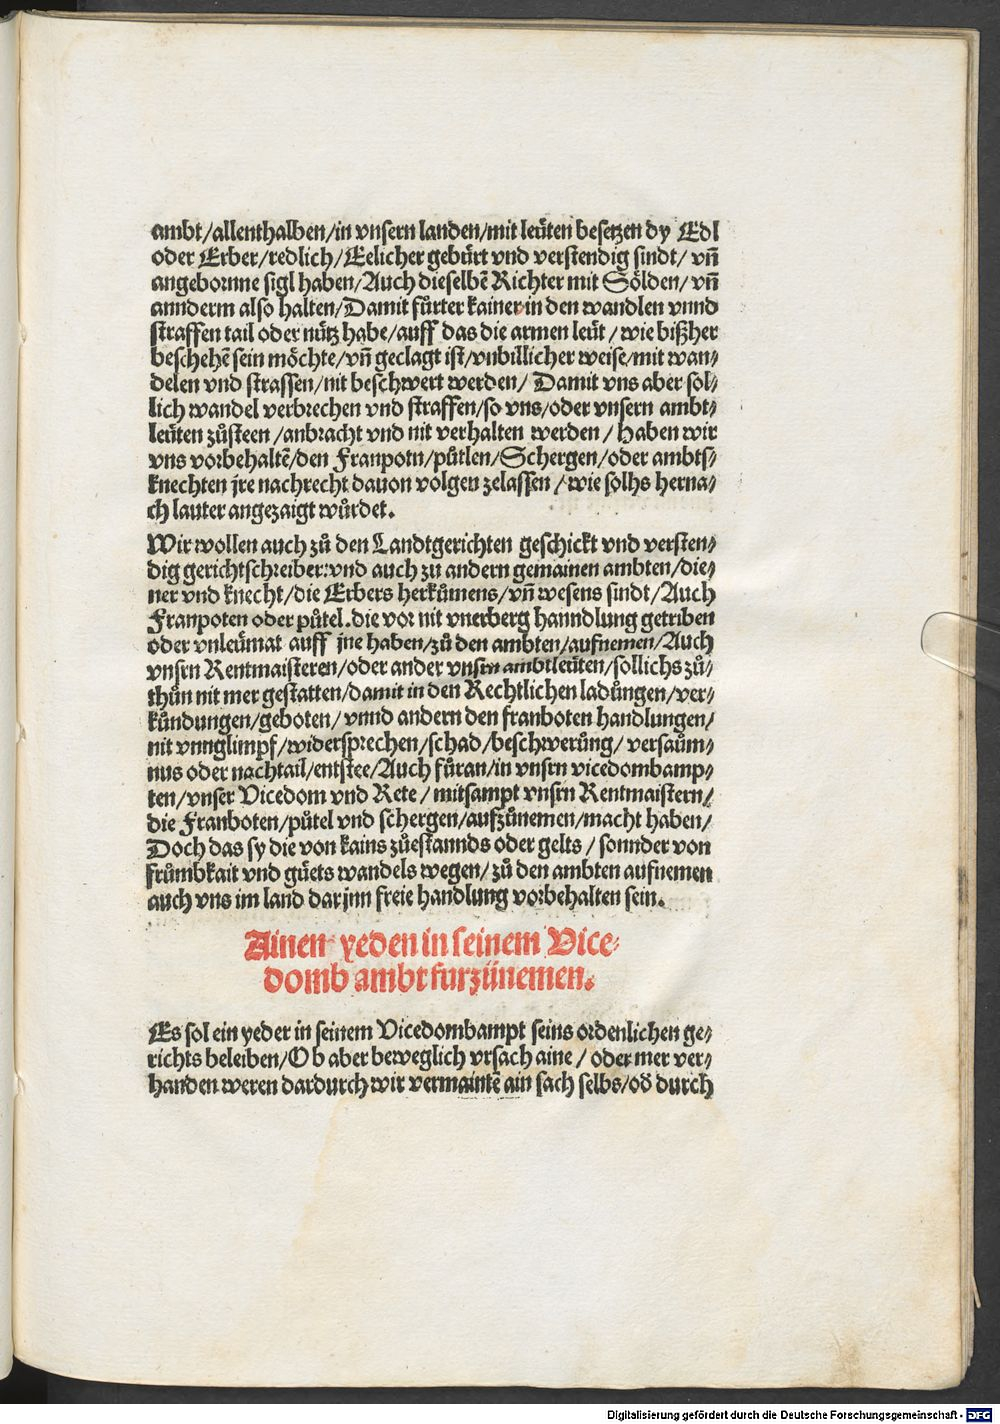 ambt/allenthalben/in vnsern landen/mit leüten besetzen dy Edl
oder Erber/redlich/Eelicher gebürt vnd verstendig sindt/ vn̄
angebornne sigl haben/Auch dieselbē Richter mit Sölden/ vn̄
annderm also halten/Damit fůrter kainer in den wandlen vnnd
straffen tail oder nůtz habe/auff das die armen leüt/ wie bißher
beschehē sein möchte/vn̄ geclagt ist/vnbillicher weise/mit wan⸗
delen vnd straffen/nit beschwert werden/ Damit vns aber sol⸗
lich wandel verbrechen vnd straffen/so vns/oder vnsern ambt⸗
leüten zůsteen/anbracht vnd nit verhalten werden/ Haben wir
vns vorbehaltē/den Franpotn/půtlen/Schergen/oder ambts⸗
knechten jre nachrecht dauon volgen zelassen/ wie solhs herna⸗
ch lauter angezaigt wůrdet.
Wir wollen auch zů den Landtgerichten geschickt vnd versten⸗
dig gerichtschreiber:vnd auch zu andern gemainen ambten/die⸗
ner vnd knecht/die Erbers herkůmens/vn̄ wesens sindt/Auch
Franpoten oder půtel.die vor nit vnerberg hanndlung getriben
oder vnleümat auff jne haben/zů den ambten/aufnemen/Auch
vnsrn Rentmaisteren/oder ander vnsrn ambtleüten/sollichs zů⸗
thůn nit mer gestatten/damit in den Rechtlichen ladůngen/ver⸗
kůndungen/geboten/ vnnd andern den franboten handlungen/
nit vnnglimpf/widersprechen/schad/beschwerůng/ versaům⸗
nus oder nachtail/entstee/Auch fůran/in vnsrn vicedombamp⸗
ten/vnser Vicedom vnd Rete/ mitsampt vnsrn Rentmaistern/
die Franboten/půtel vnd schergen/aufzůnemen/macht haben/
Doch das sy die von kains zůestannds oder gelts/ sonnder von
frůmbkait vnd gůets wandels wegen/ zů den ambten aufnemen
auch vns im land dar jnn freie handlung vorbehalten sein.
Ainen yeden in seinem Vice⸗
domb ambt furzünemen.
Es sol ein yeder in seinem Vicedombampt seins ordenlichen ge⸗
richts beleiben/Ob aber beweglich vrsach aine/ oder mer ver⸗
handen weren dardurch wir vermaintē ain sach selbs/od̄ durch
Digitalisierung gefördert durch die Deutsche Forschungsgemeinschaft - DFG